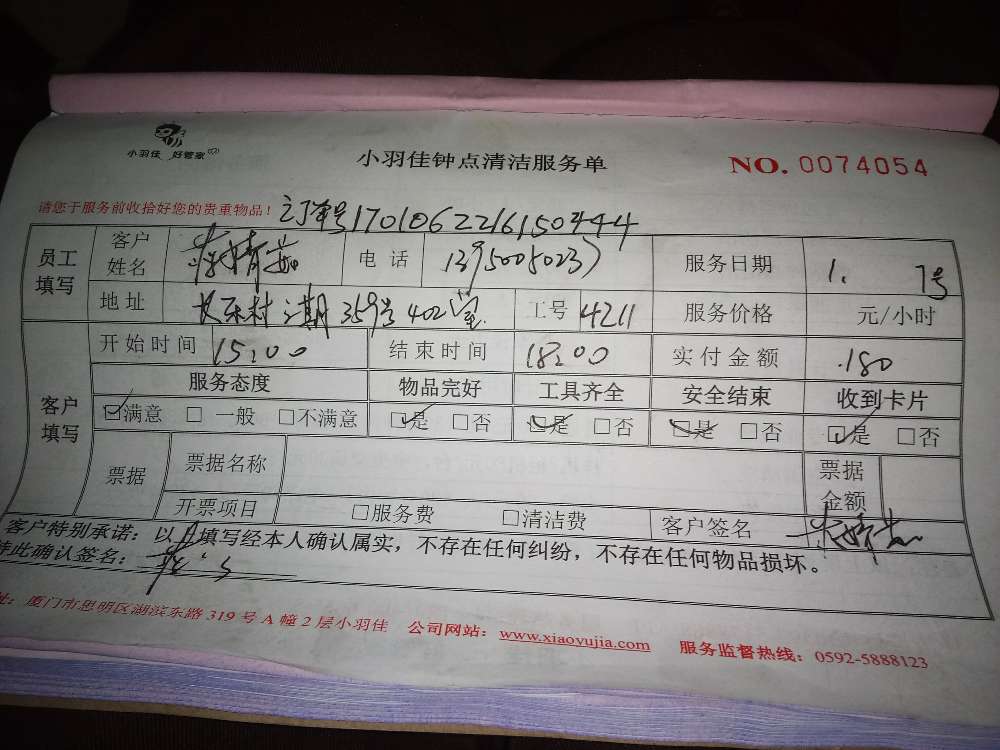 小羽佳 好管家
小羽佳钟点清洁服务单
NO. 0074054
请您于服务前收拾好您的贵重物品！ 订单号1701062216150444
员工填写 客户姓名 电话 服务日期 1. 7号
地址 长乐村二期359号402室 工号 4211 服务价格 元/小时
客户填写 开始时间 15:00 结束时间 18:00 实付金额 180
服务态度 物品完好 工具齐全 安全结束 收到卡片
☑满意 □ 一般 □不满意 ☑是 □否 ☑是 □否 ☑是 □否 ☑是 □否
票据 票据名称 票据金额
开票项目 □服务费 □清洁费 客户签名
客户特别承诺：以上填写经本人确认属实，不存在任何纠纷，不存在任何物品损坏。
特此确认签名：
址：厦门市思明区湖滨东路 319 号 A 幢 2 层小羽佳 公司网站：www.xiaoyujia.com 服务监督热线：0592-5888123